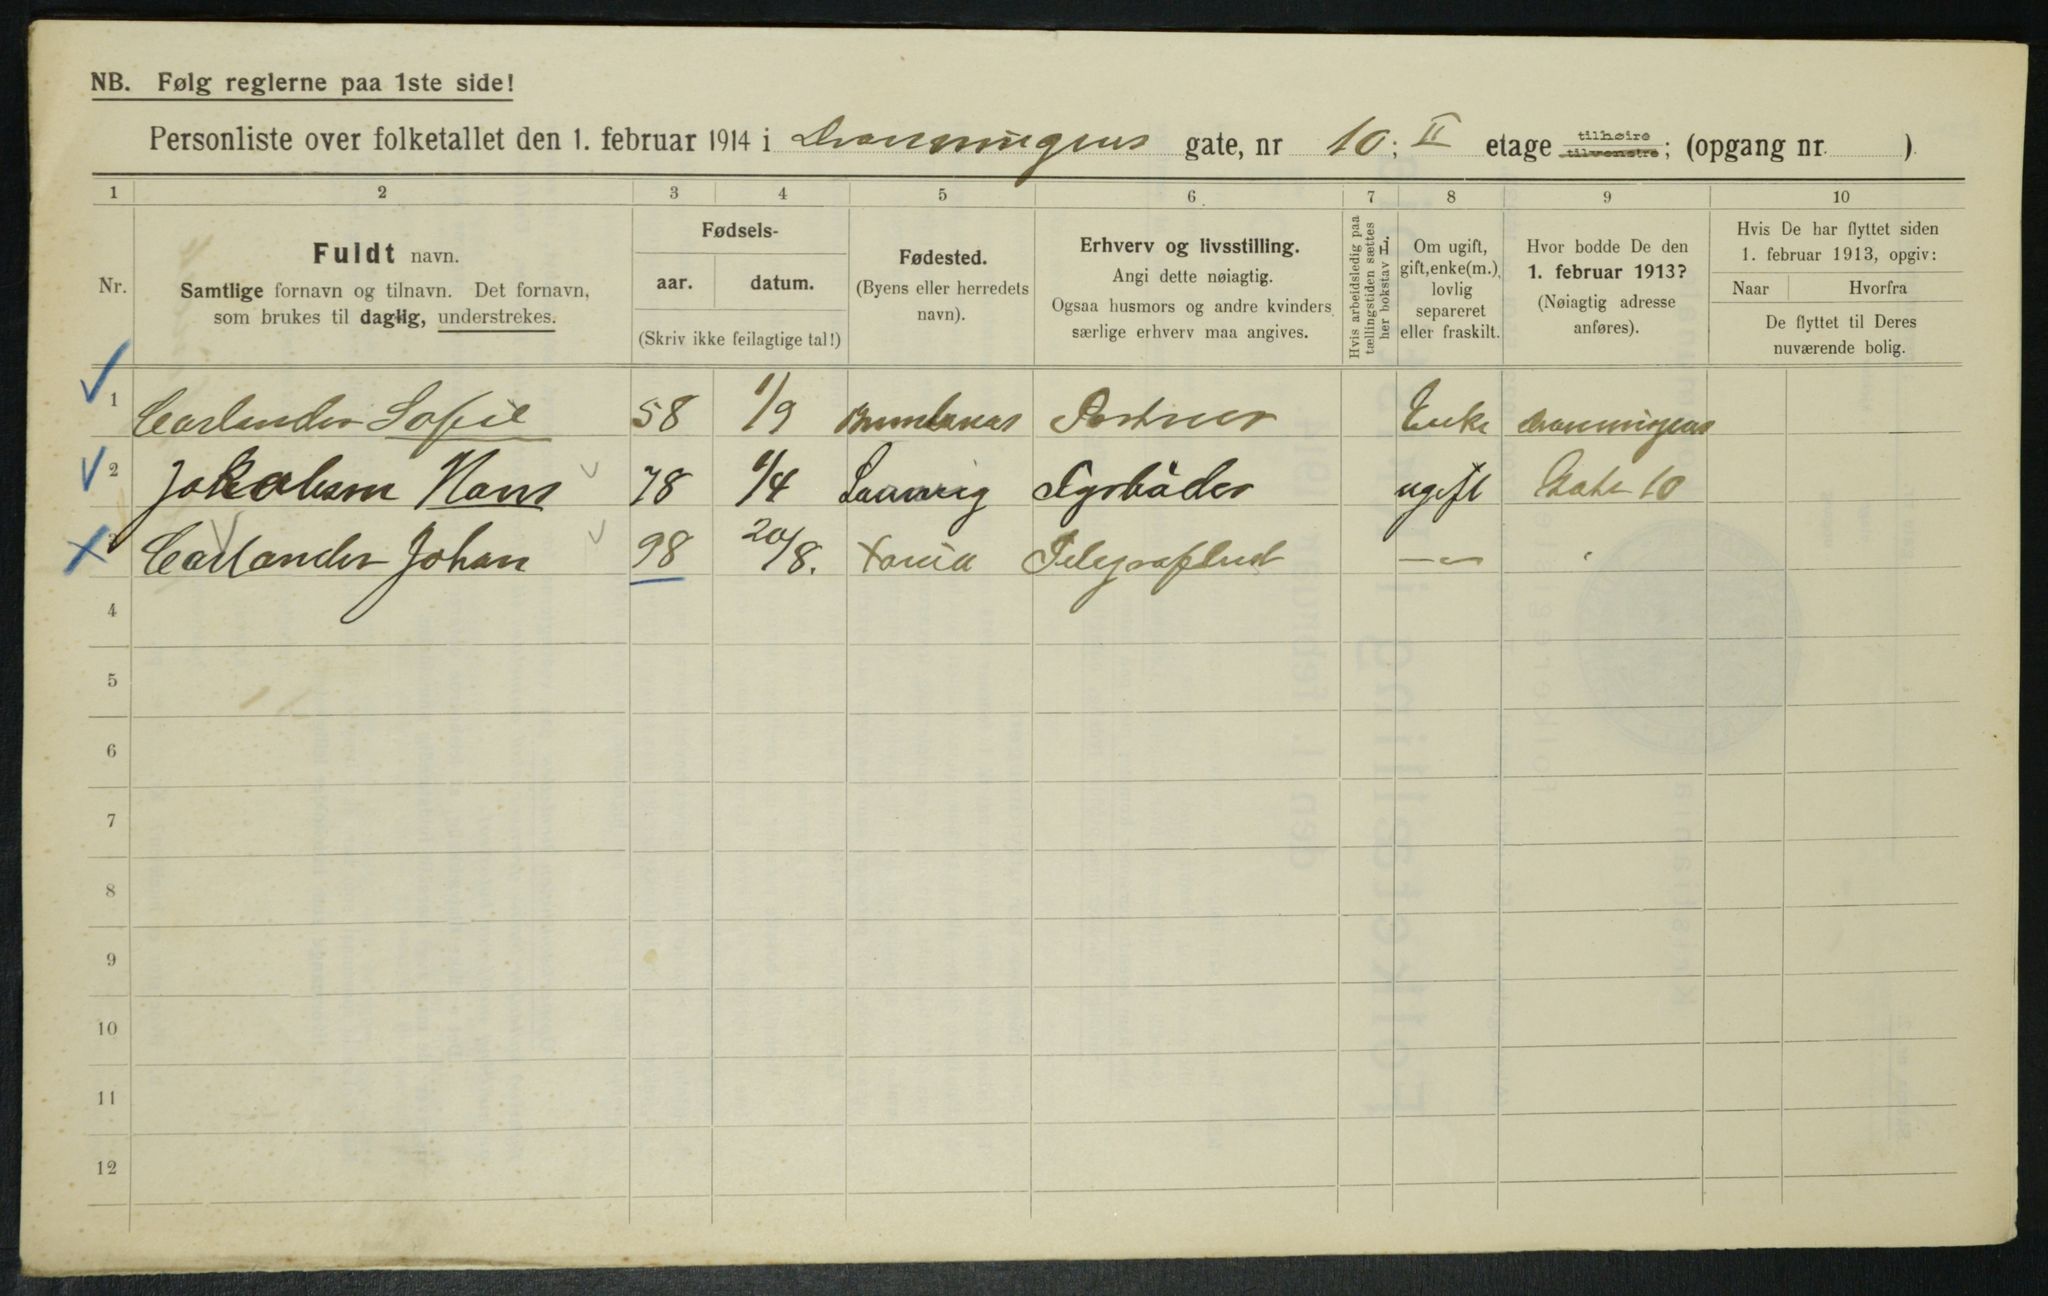 NB. Følg reglerne paa 1ste side!
Personliste over folketallet den 1. februar 1914 i Dronningens gate, nr 10; II etage tilhøire tilvenstre; (opgang nr. )
1 2 3 4 5 6 7 8 9 10
Nr.
Fuldt navn.
Samtlige fornavn og tilnavn. Det fornavn,
som brukes til daglig, understrekes.
Fødsels-
aar. datum.
(Skriv ikke feilagtige tal!)
Fødested.
(Byens eller herredets
navn).
Erhverv og livsstilling.
Angi dette nøiagtig.
Ogsaa husmors og andre kvinders
særlige erhverv maa angives.
Hvis arbeidsledig paa
tællingstiden sættes
her bokstav L.
Om ugift,
gift, enke(m.),
lovlig
separeret
eller fraskilt.
Hvor bodde De den
1. februar 1913?
(Nøiagtig adresse
anføres).
Hvis De har flyttet siden
1. februar 1913, opgiv:
Naar Hvorfra
De flyttet til Deres
nuværende bolig.
1 Carlander Sofie 58 1/9 Brunlanæs Portner Enke Dronningens
2 Jakobsen Hans 78 1/4 Laurvig Fyrbøder ugift Gate 10
3 Carlander Johan 98 20/8. Xania Telegrafbud —"—
4
5
6
7
8
9
10
11
12